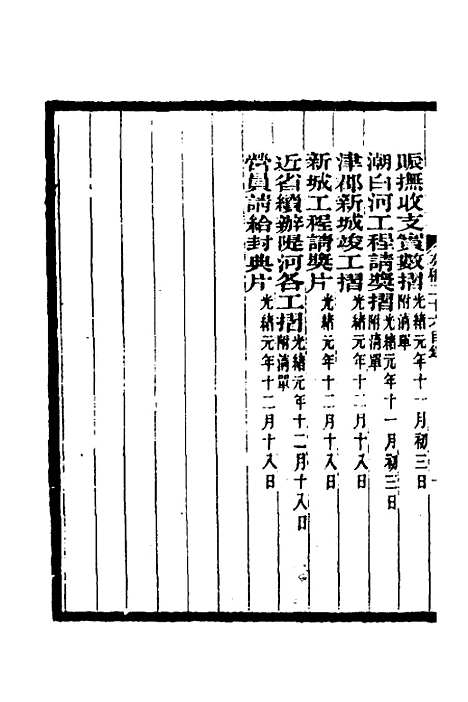 賑撫收支實數摺光緒元年十一月初三日附清單
潮白河工程請獎摺光緒元年十一月初三日附清單
津郡新城竣工摺光緒元年十二月十八日
新城工程請獎片光緒元年十二月十八日
近省續辦隄河各工摺光緒元年十二月十八日附清單
營員請給封典片光緒元年十二月十八日